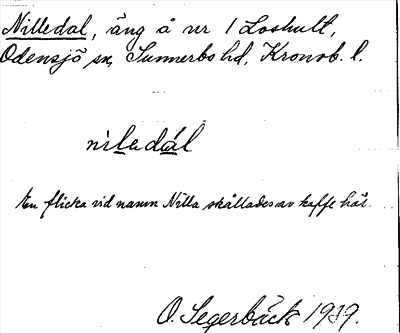 Nilledal, äng å nr 1 Loshult,
Odensjö sn, Sunnerbo hd, Kronob. l.
niledál
En flicka vid namn Nilla skållades av kaffe här.
O. Segerbäck 1939.